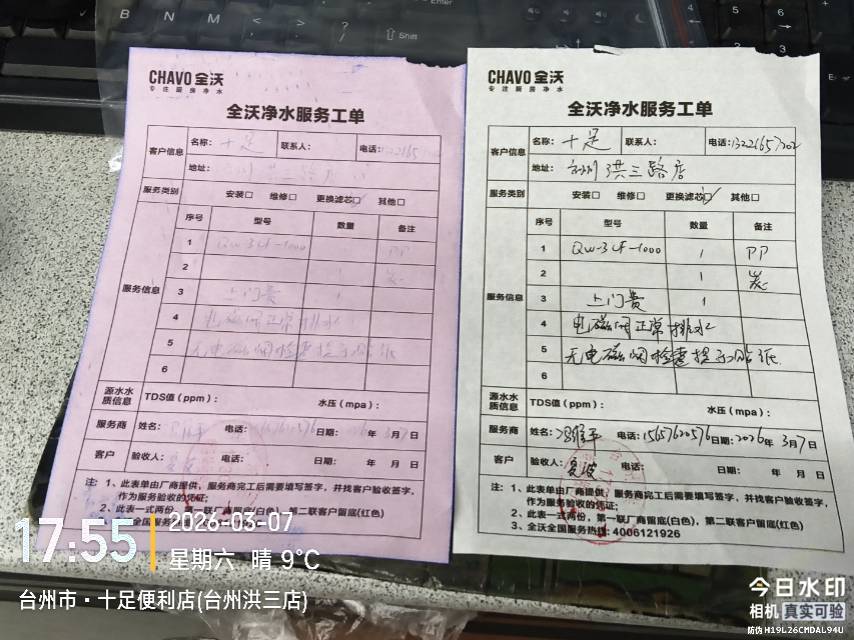 B N M < > ? Shift
Enter
CHAVO 全沃
专注厨房净水
全沃净水服务工单
客户信息 名称: 十足 联系人: 电话:
地址: 台州洪三路店
服务类别 安装□ 维修□ 更换滤芯□ 其他□
服务信息
序号 型号 数量 备注
1 QW-3LF-1000 PP
2
3 上门费 1
4 电磁阀正常排水
5 无电磁阀检查提示贴纸
6
源水水质信息 TDS值(ppm): 水压(mpa):
服务商 姓名: 电话: 15657620576 日期: 2026年3月7日
客户 验收人: 电话: 日期: 年 月 日
注: 1、此表单由厂商提供,服务商完工后需要填写签字,并找客户验收签字,
作为服务验收的凭证;
2、此表一式两份,第一联厂商留底(白色),第二联客户留底(红色)
全沃全国服务
CHAVO 全沃
专注厨房净水
全沃净水服务工单
客户信息 名称: 十足 联系人: 电话: 13221657702
地址: 台州洪三路店
服务类别 安装□ 维修□ 更换滤芯☑ 其他□
服务信息
序号 型号 数量 备注
1 QW-3LF-1000 1 PP
2 1 炭
3 上门费 1
4 电磁阀正常排水
5 无电磁阀检查提示贴纸
6
源水水质信息 TDS值(ppm): 水压(mpa):
服务商 姓名: 电话: 15657620576 日期: 2026年3月7日
客户 验收人: 夏波 电话: 日期: 年 月 日
注: 1、此表单由厂商提供,服务商完工后需要填写签字,并找客户验收签字,
作为服务验收的凭证;
2、此表一式两份,第一联厂商留底(白色),第二联客户留底(红色)
3、全沃全国服务热线: 4006121926
17:55
2026-03-07
星期六 晴 9°C
台州市·十足便利店(台州洪三店)
今日水印
相机 真实可验
防伪 H19L26CMDAL94U